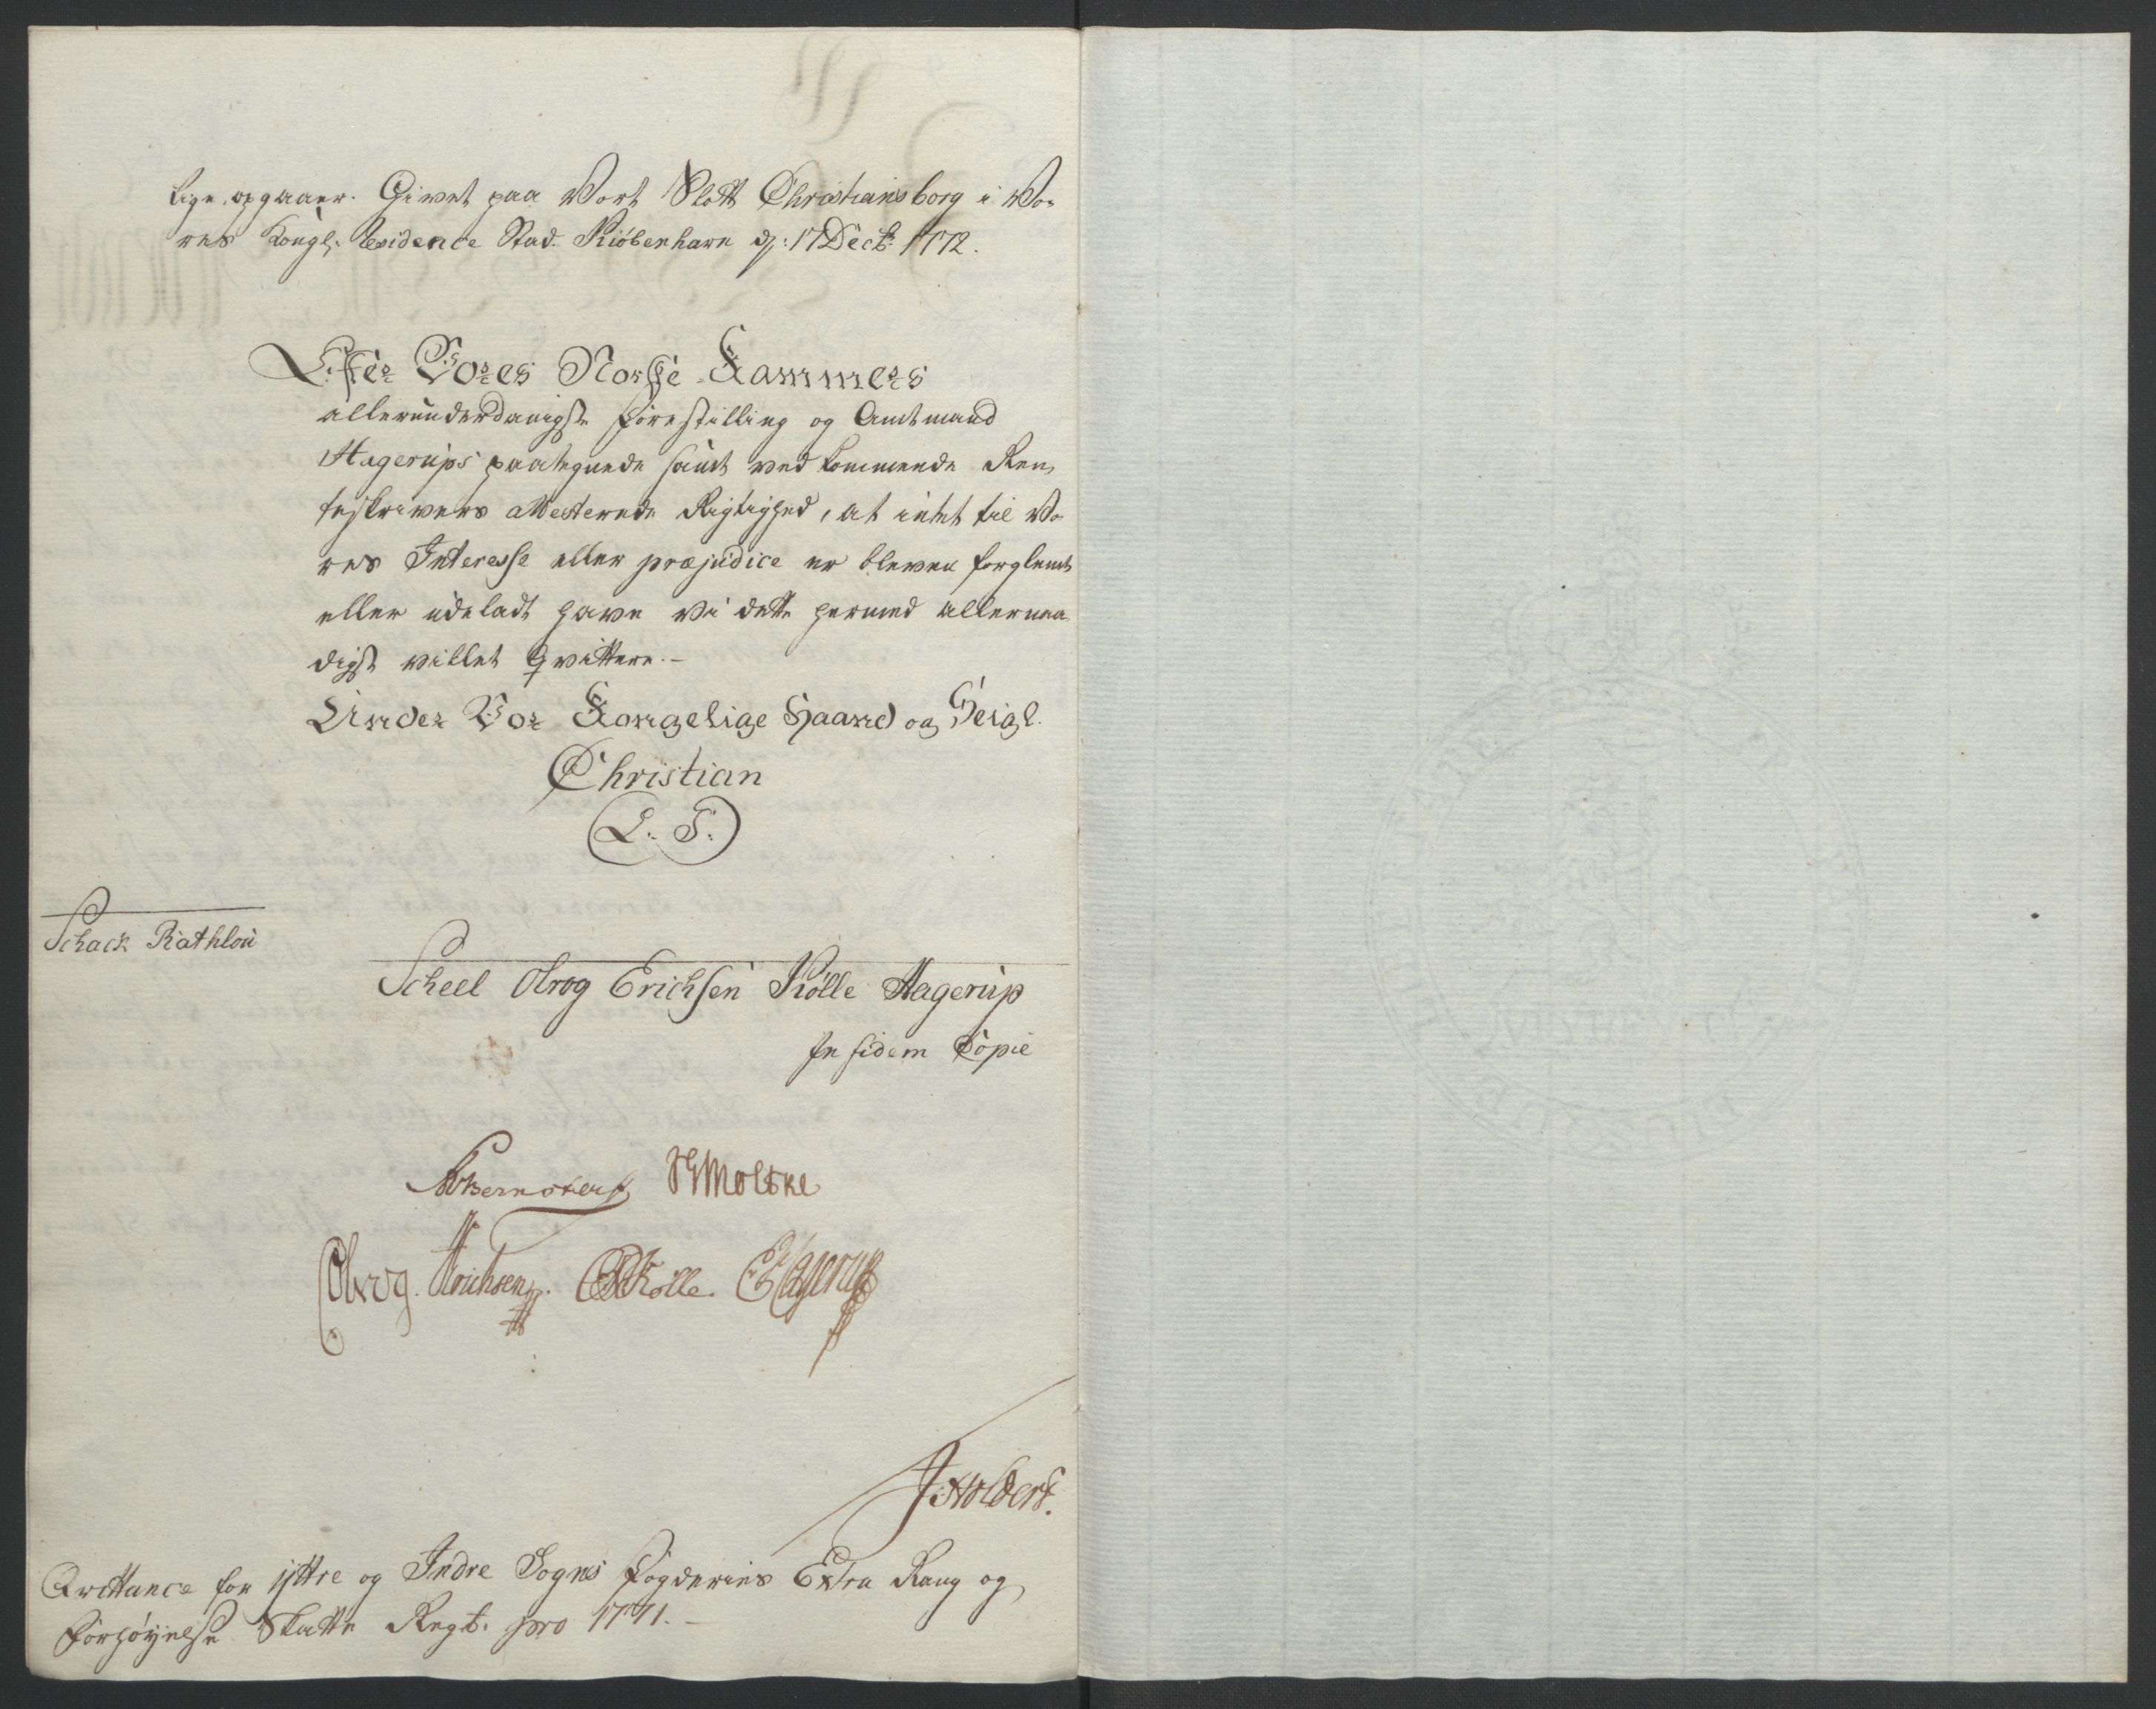 lige opgaaer. Givet paa Vort Slott Christiansborg i Vo-
res Kongl: Residence Stad Kiøbenhavn d: 17 Decb: 1772.
Efter Vores Norske Kammers
allerunderdanigste Forestilling og Amtmand
Hagerups paategnede samt vedkommende Ren-
teskrivers attesterede Rigtighed, at intet til Vo-
res Interesse eller præjudice er bleven forglemt
eller udeladt have Vi dette hermed allernaa-
digst villet Qvittere.-
Under Vor Kongelige Haand og Seigl.
Christian
(L. S.)
Schack Rathlou
Scheel Obrog Erichsen Kølle Hagerup
In fidem Copie
HMoltke
Obrog. Erichsen. Kølle. EHagerup
Qvittance for Yttre og Indre Sogns Fogderies Extra Rang og
Forhøyelse Skatte Regb. pro 1771.-